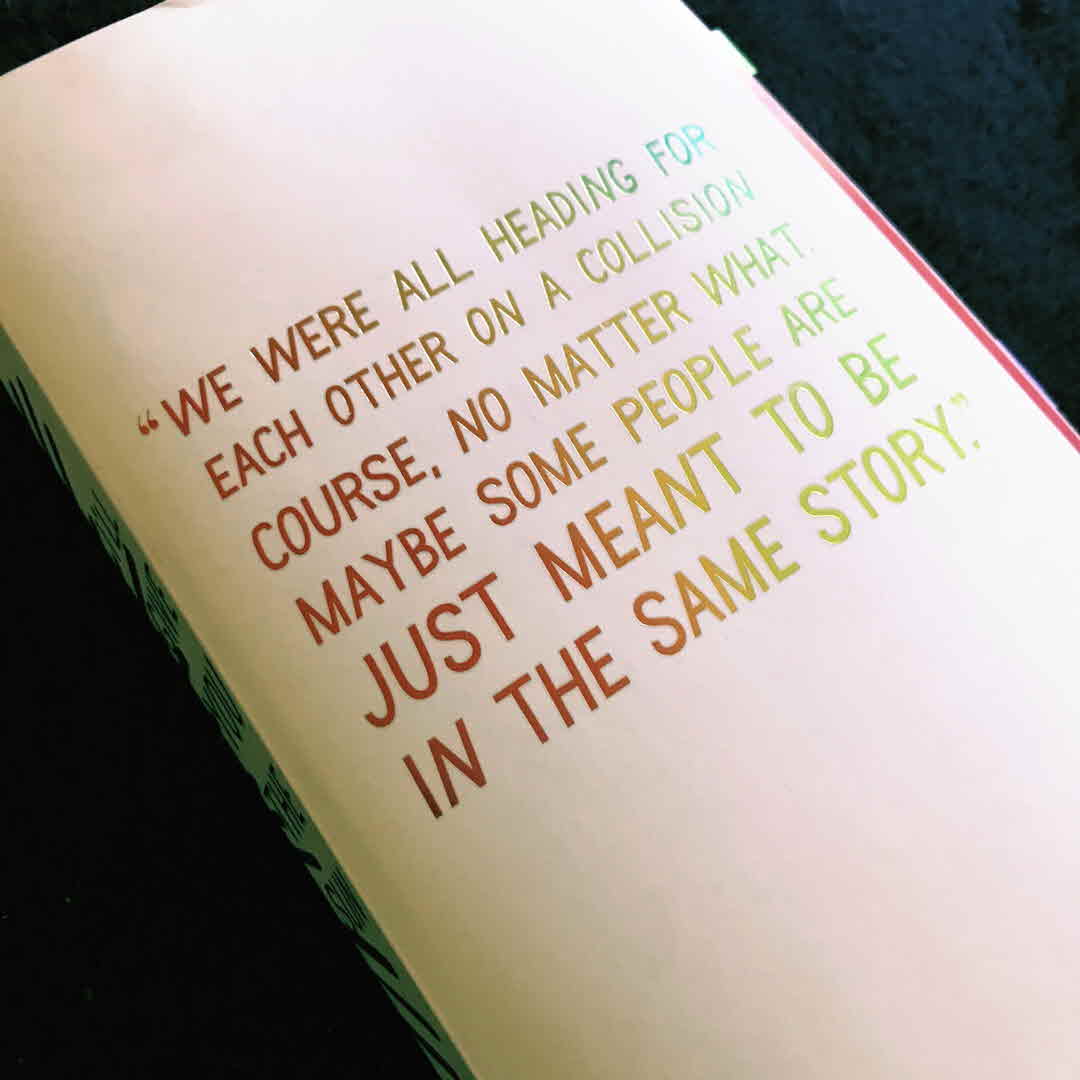 “WE WERE ALL HEADING FOR
EACH OTHER ON A COLLISION
COURSE, NO MATTER WHAT.
MAYBE SOME PEOPLE ARE
JUST MEANT TO BE
IN THE SAME STORY.”
GIVE
YOU
THE
SUN